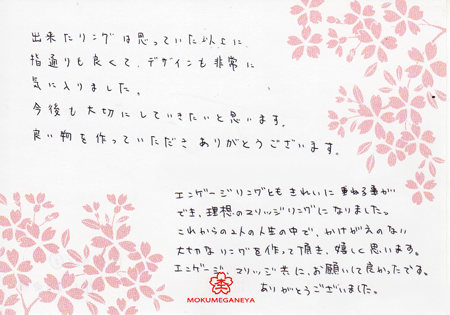 出来たリングは思っていた以上に、
指通りも良くて、デザインも非常に
気に入りました。
今後も大切にしていきたいと思います。
良い物を作っていただき ありがとうございます。
エンゲージリングとも きれいに 重ねる事が
でき、理想のマリッジリングになりました。
これからの2人の人生の中で、かけがえのない
大切な リングを作って頂き、嬉しく思います。
エンゲージ、マリッジ共に、お願いして良かったです。
ありがとうございました。
MOKUMEGANEYA